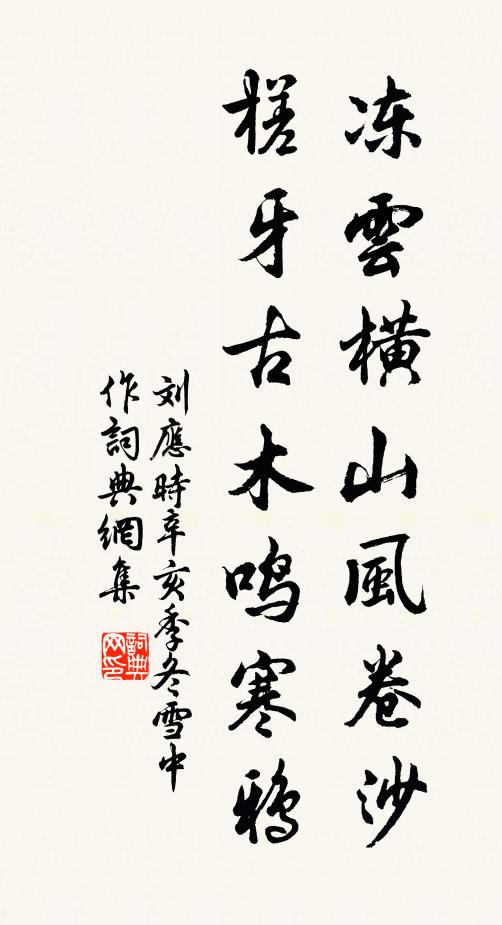 冻雲横山風卷沙
槎牙古木鸣寒鸦
刘應時辛亥季冬雪中
作詞典網集
詞典
网印